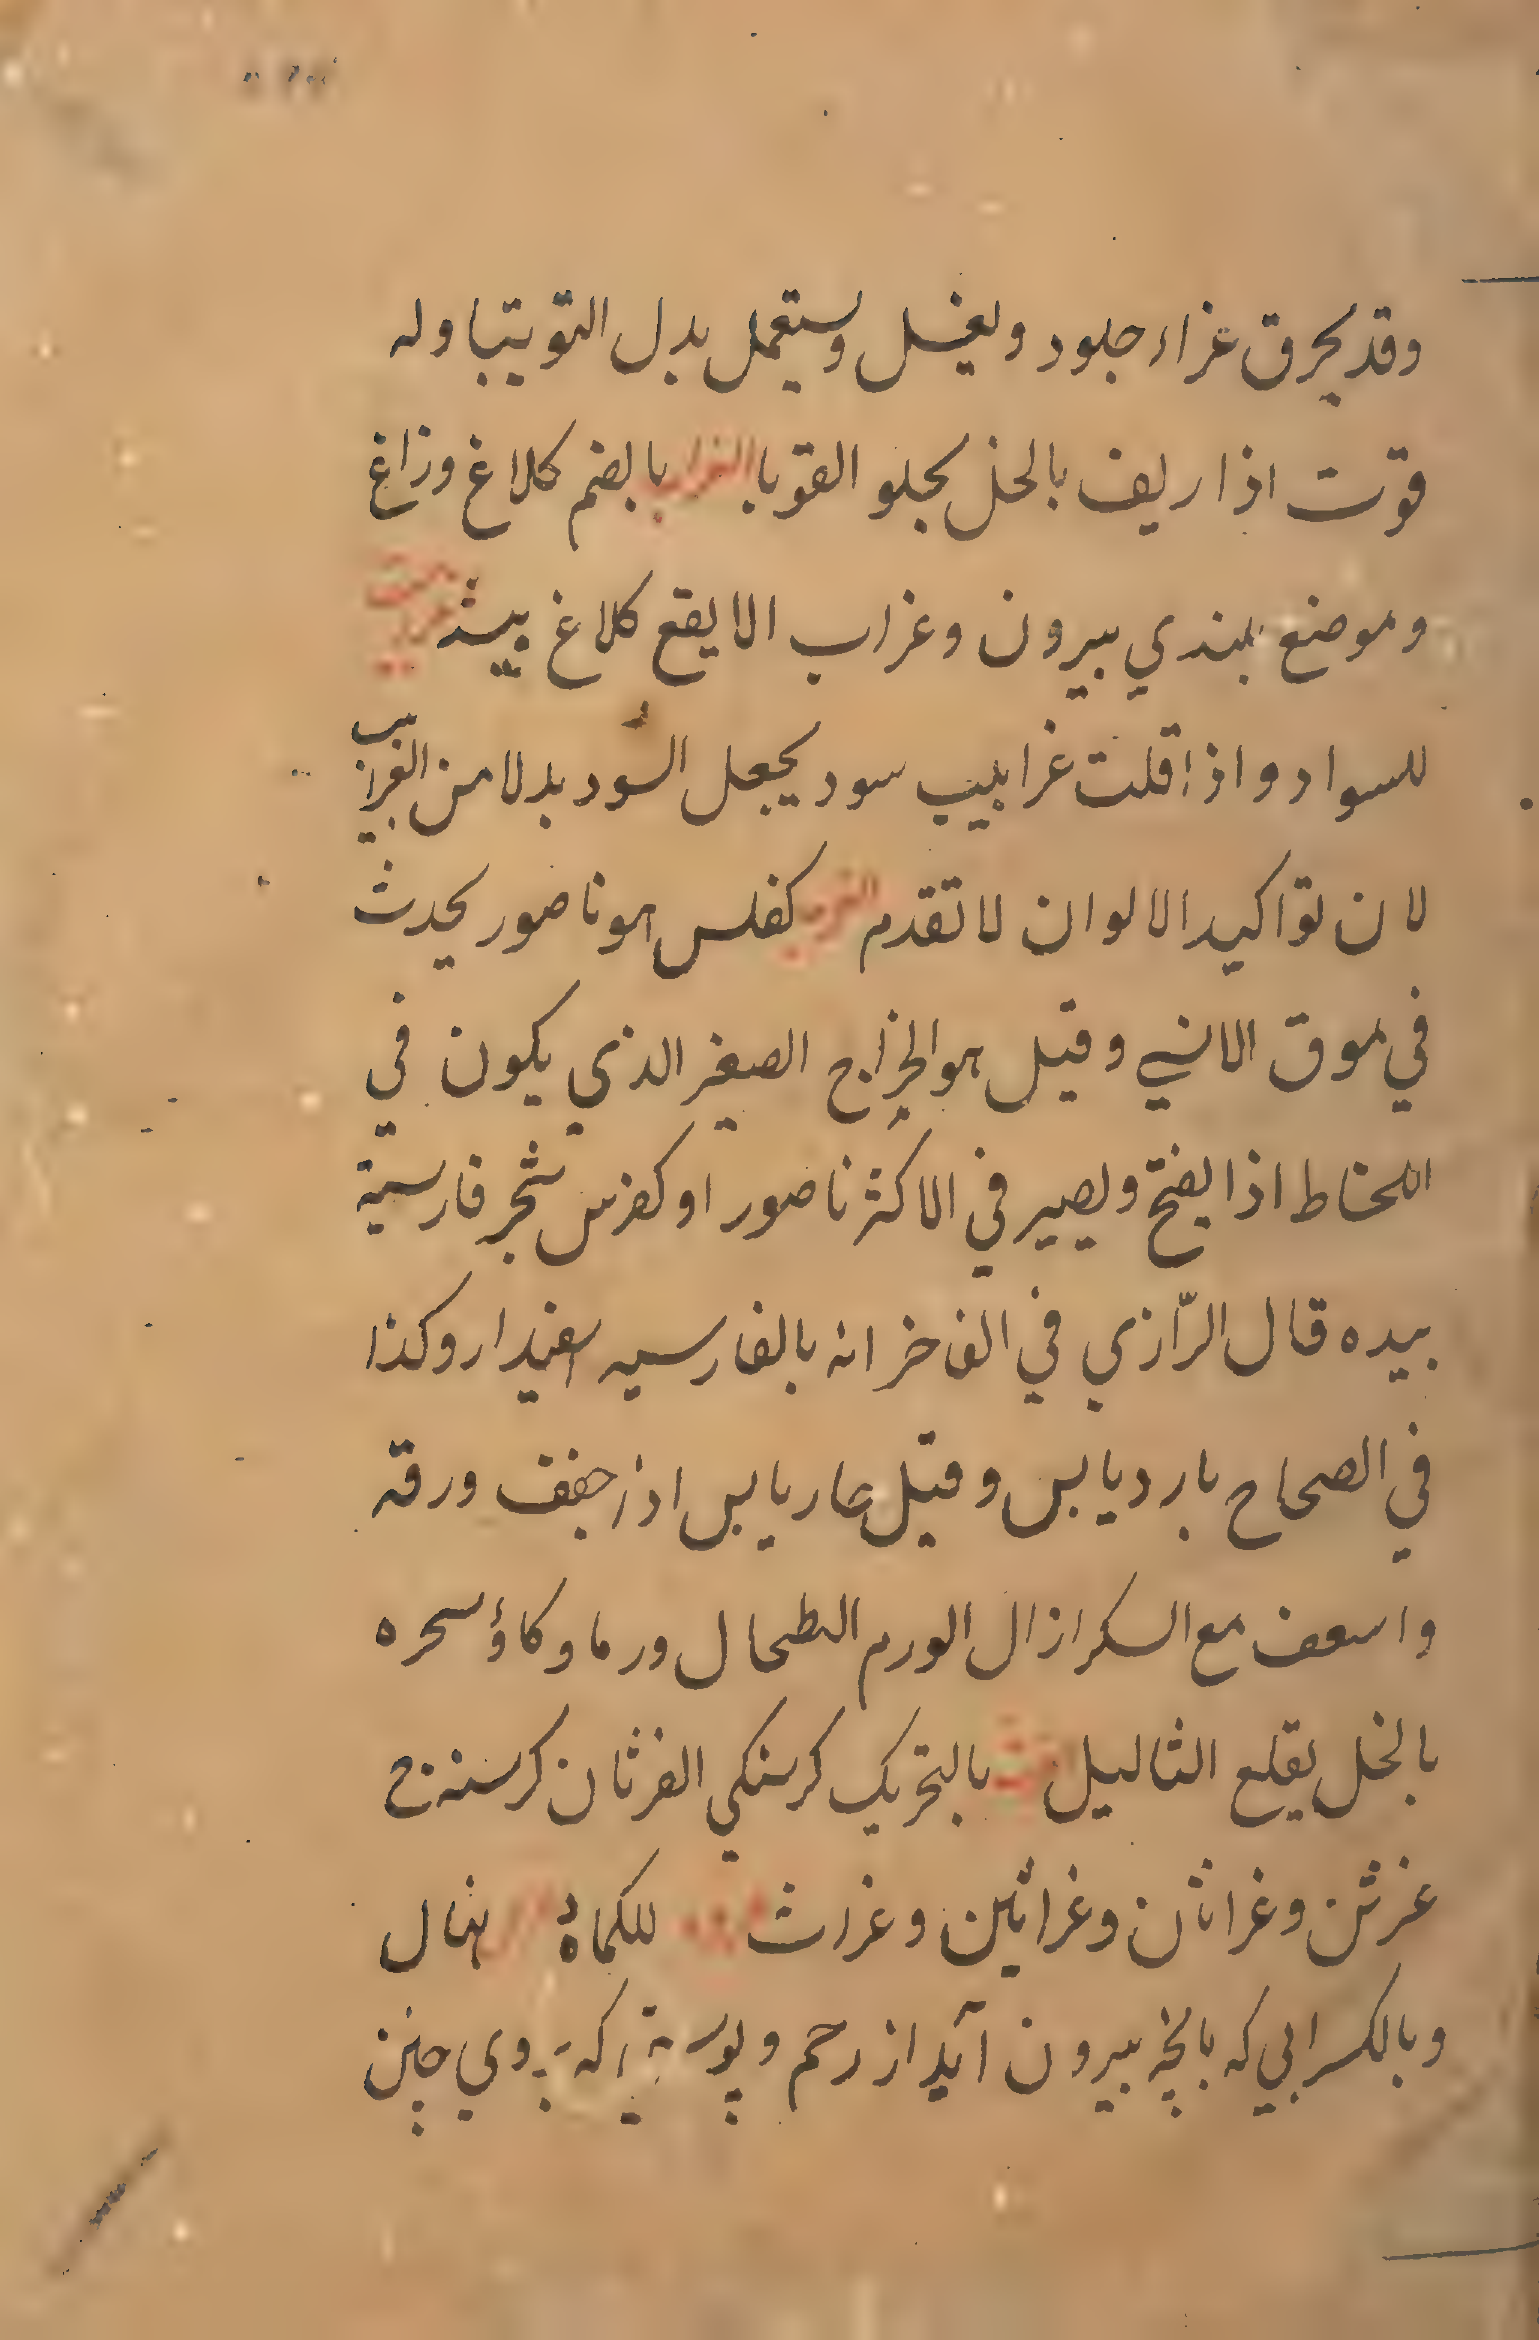 وقد يحرق غراء جلود ويغسل ويستعمل بدل التوتيا وله
قوت اذا ريف بالخل يجلو القوبا الغراب بالضم كلاغ وزاغ
وموضع بلندي بيرون وغراب الابقع كلاغ بيشه
للسواد واذا قلت غرابيب سود يجعل السود بدلا من الغرابيب
لان تواكيد الالوان لا تقدم الغرب كفلس هو ناصور يحدث
في موق الانسي وقيل هو الخراج الصغير الذي يكون في
اللحاظ اذا يفتح ويصير في الاكثر ناصور او كفرس شجر فارسيته
بيده قال الرازي في الفاخر انه بالفارسيه اسفيدار وكذا
في الصحاح بارد يابس وقيل حار يابس اذا جفف ورقه
واسعف مع السكر ازال الورم الطحال ورما وكاؤ سحره
بالخل يقلع الثاليل بالتحريك كرسنكي الغرثان كرسنه ج
غرثن وغراثان وغراثين وغراث للكماة نهال
وبالكسر ابي كه با بچه بيرون آيد از رحم و كه بروي چنين